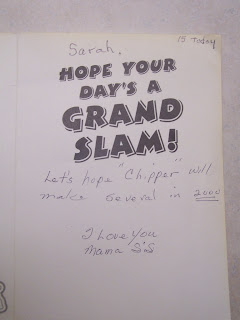 15 Today
Sarah.
HOPE YOUR
DAY'S A
GRAND
SLAM!
Let's hope "Chipper" will
make several in 2000
I Love You
Mama S's